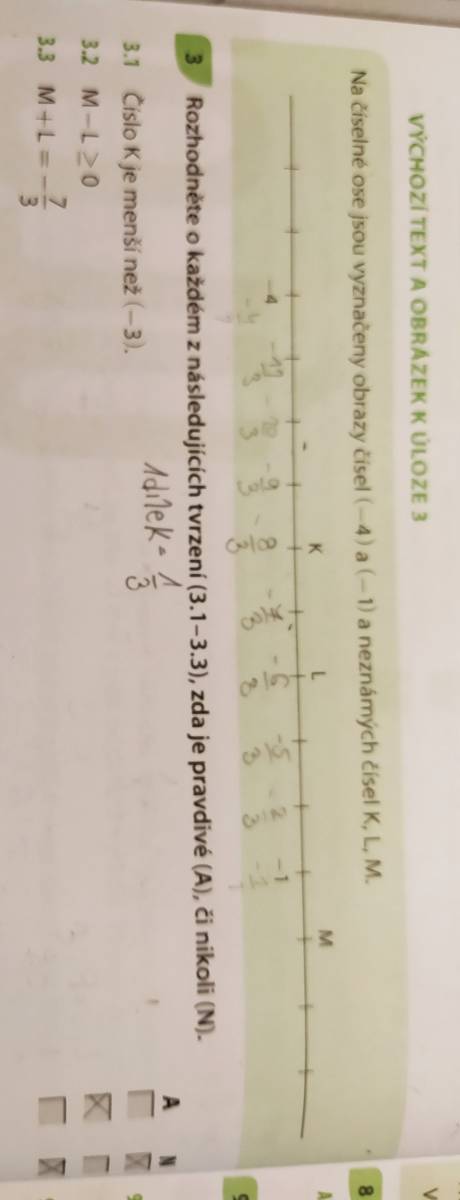 VÝCHOZÍ TEXT A OBRÁZEK K ÚLOZE 3
Na číselné ose jsou vyznačeny obrazy čísel (−4) a (−1) a neznámých čísel K, L, M.
K L M
−4 −1
−9/3 −8/3 −6/3 −5/3
3 Rozhodněte o každém z následujících tvrzení (3.1–3.3), zda je pravdivé (A), či nikoli (N).
1 dílek = 1/3
A N
3.1 Číslo K je menší než (−3).
3.2 M − L ≥ 0
3.3 M + L = −7/3
8